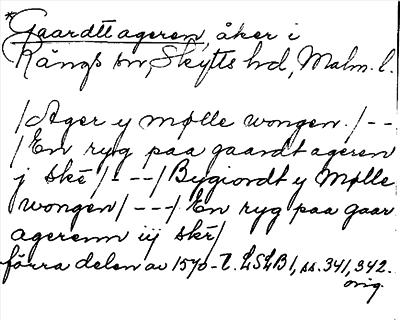 *Gaardttageren, åker i
Kängs sn, Skytts hd, Malm. l.
/Ager y mølle wongen./--
/En ryg paa gaardt ageren
j skē/---/Bygiordt y Mølle
wongen/---/En ryg paa gaar
agerenn iij skē/
förra delen av 1570-t. LSLB1, ss. 341, 342.
orig.